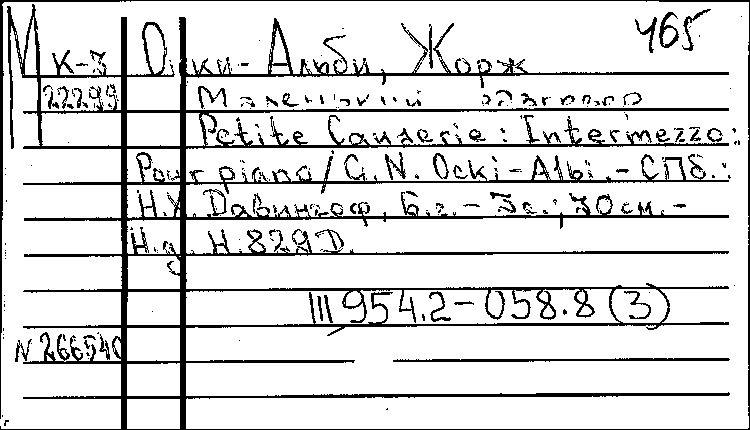 465
М к-3 Оцки-Альби, Жорж
22299 Маленький разговор
Petite Causerie: Intermezzo:
Pour piano / G. N. Ocki-Albi. - СПб.:
Н.Х. Давингоф, Б.г. - 3с.; 30 см. -
Н.д. Н.829Д.
III 954.2-058.8 (3)
N 266540